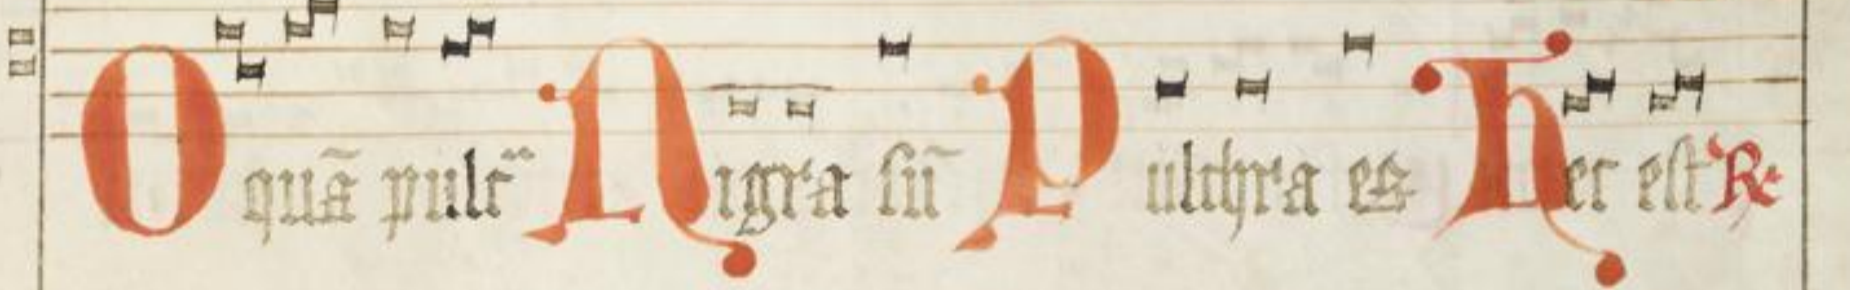 O quā pulc̈ Nigra sū Pulchra es Hec est R